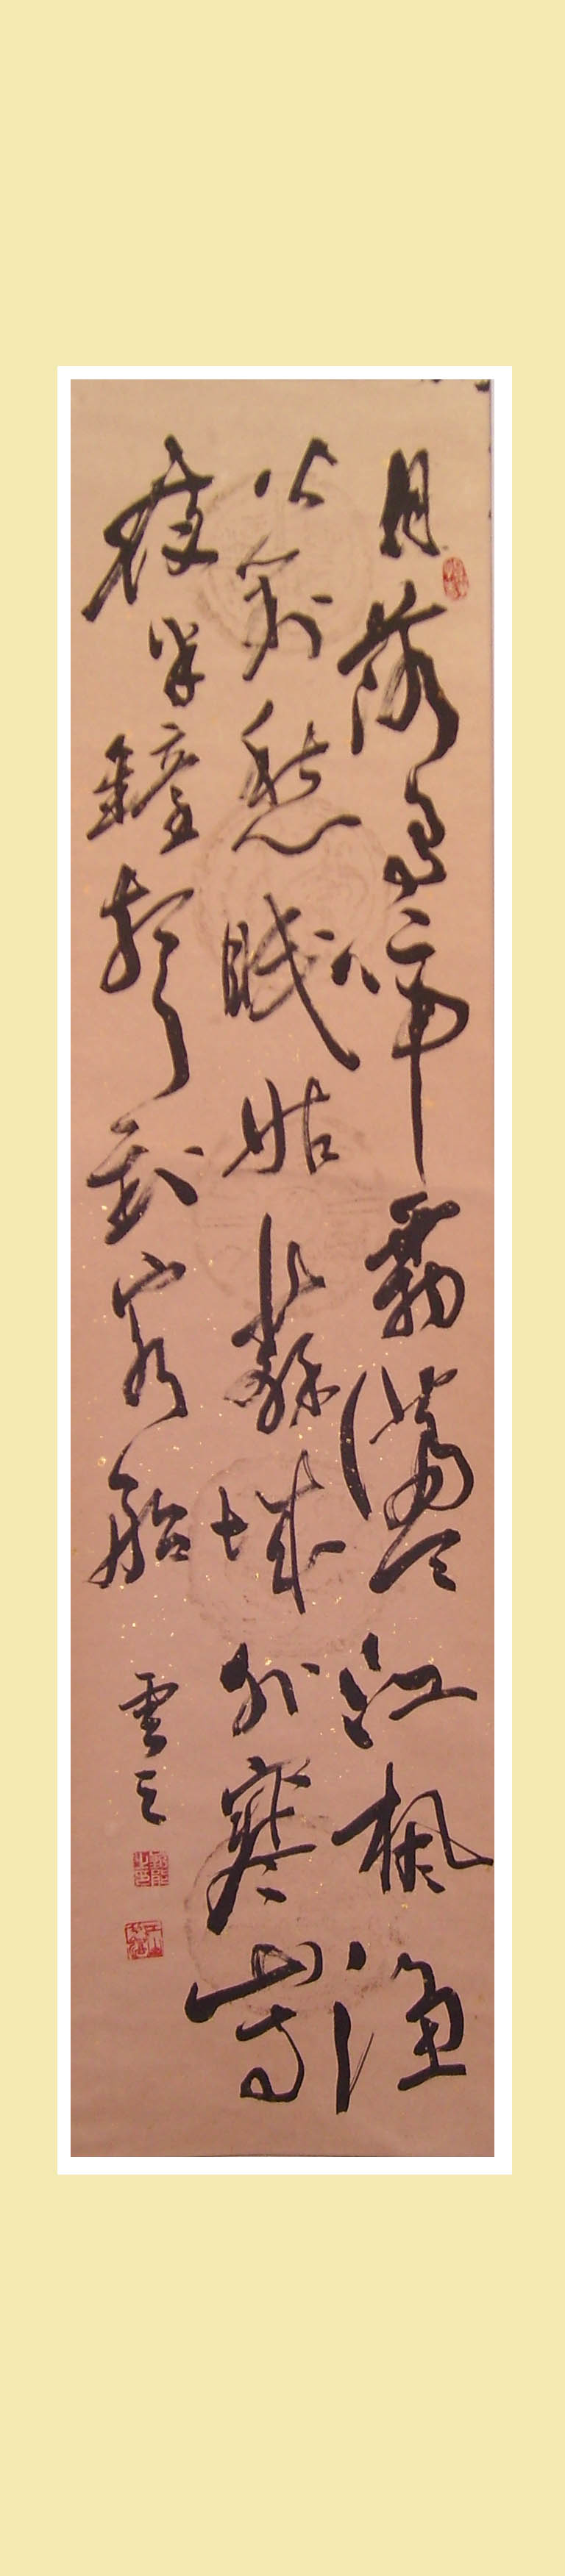 月落烏啼霜滿天江楓漁
火對愁眠姑蘇城外寒山寺
夜半鐘聲到客船
雲